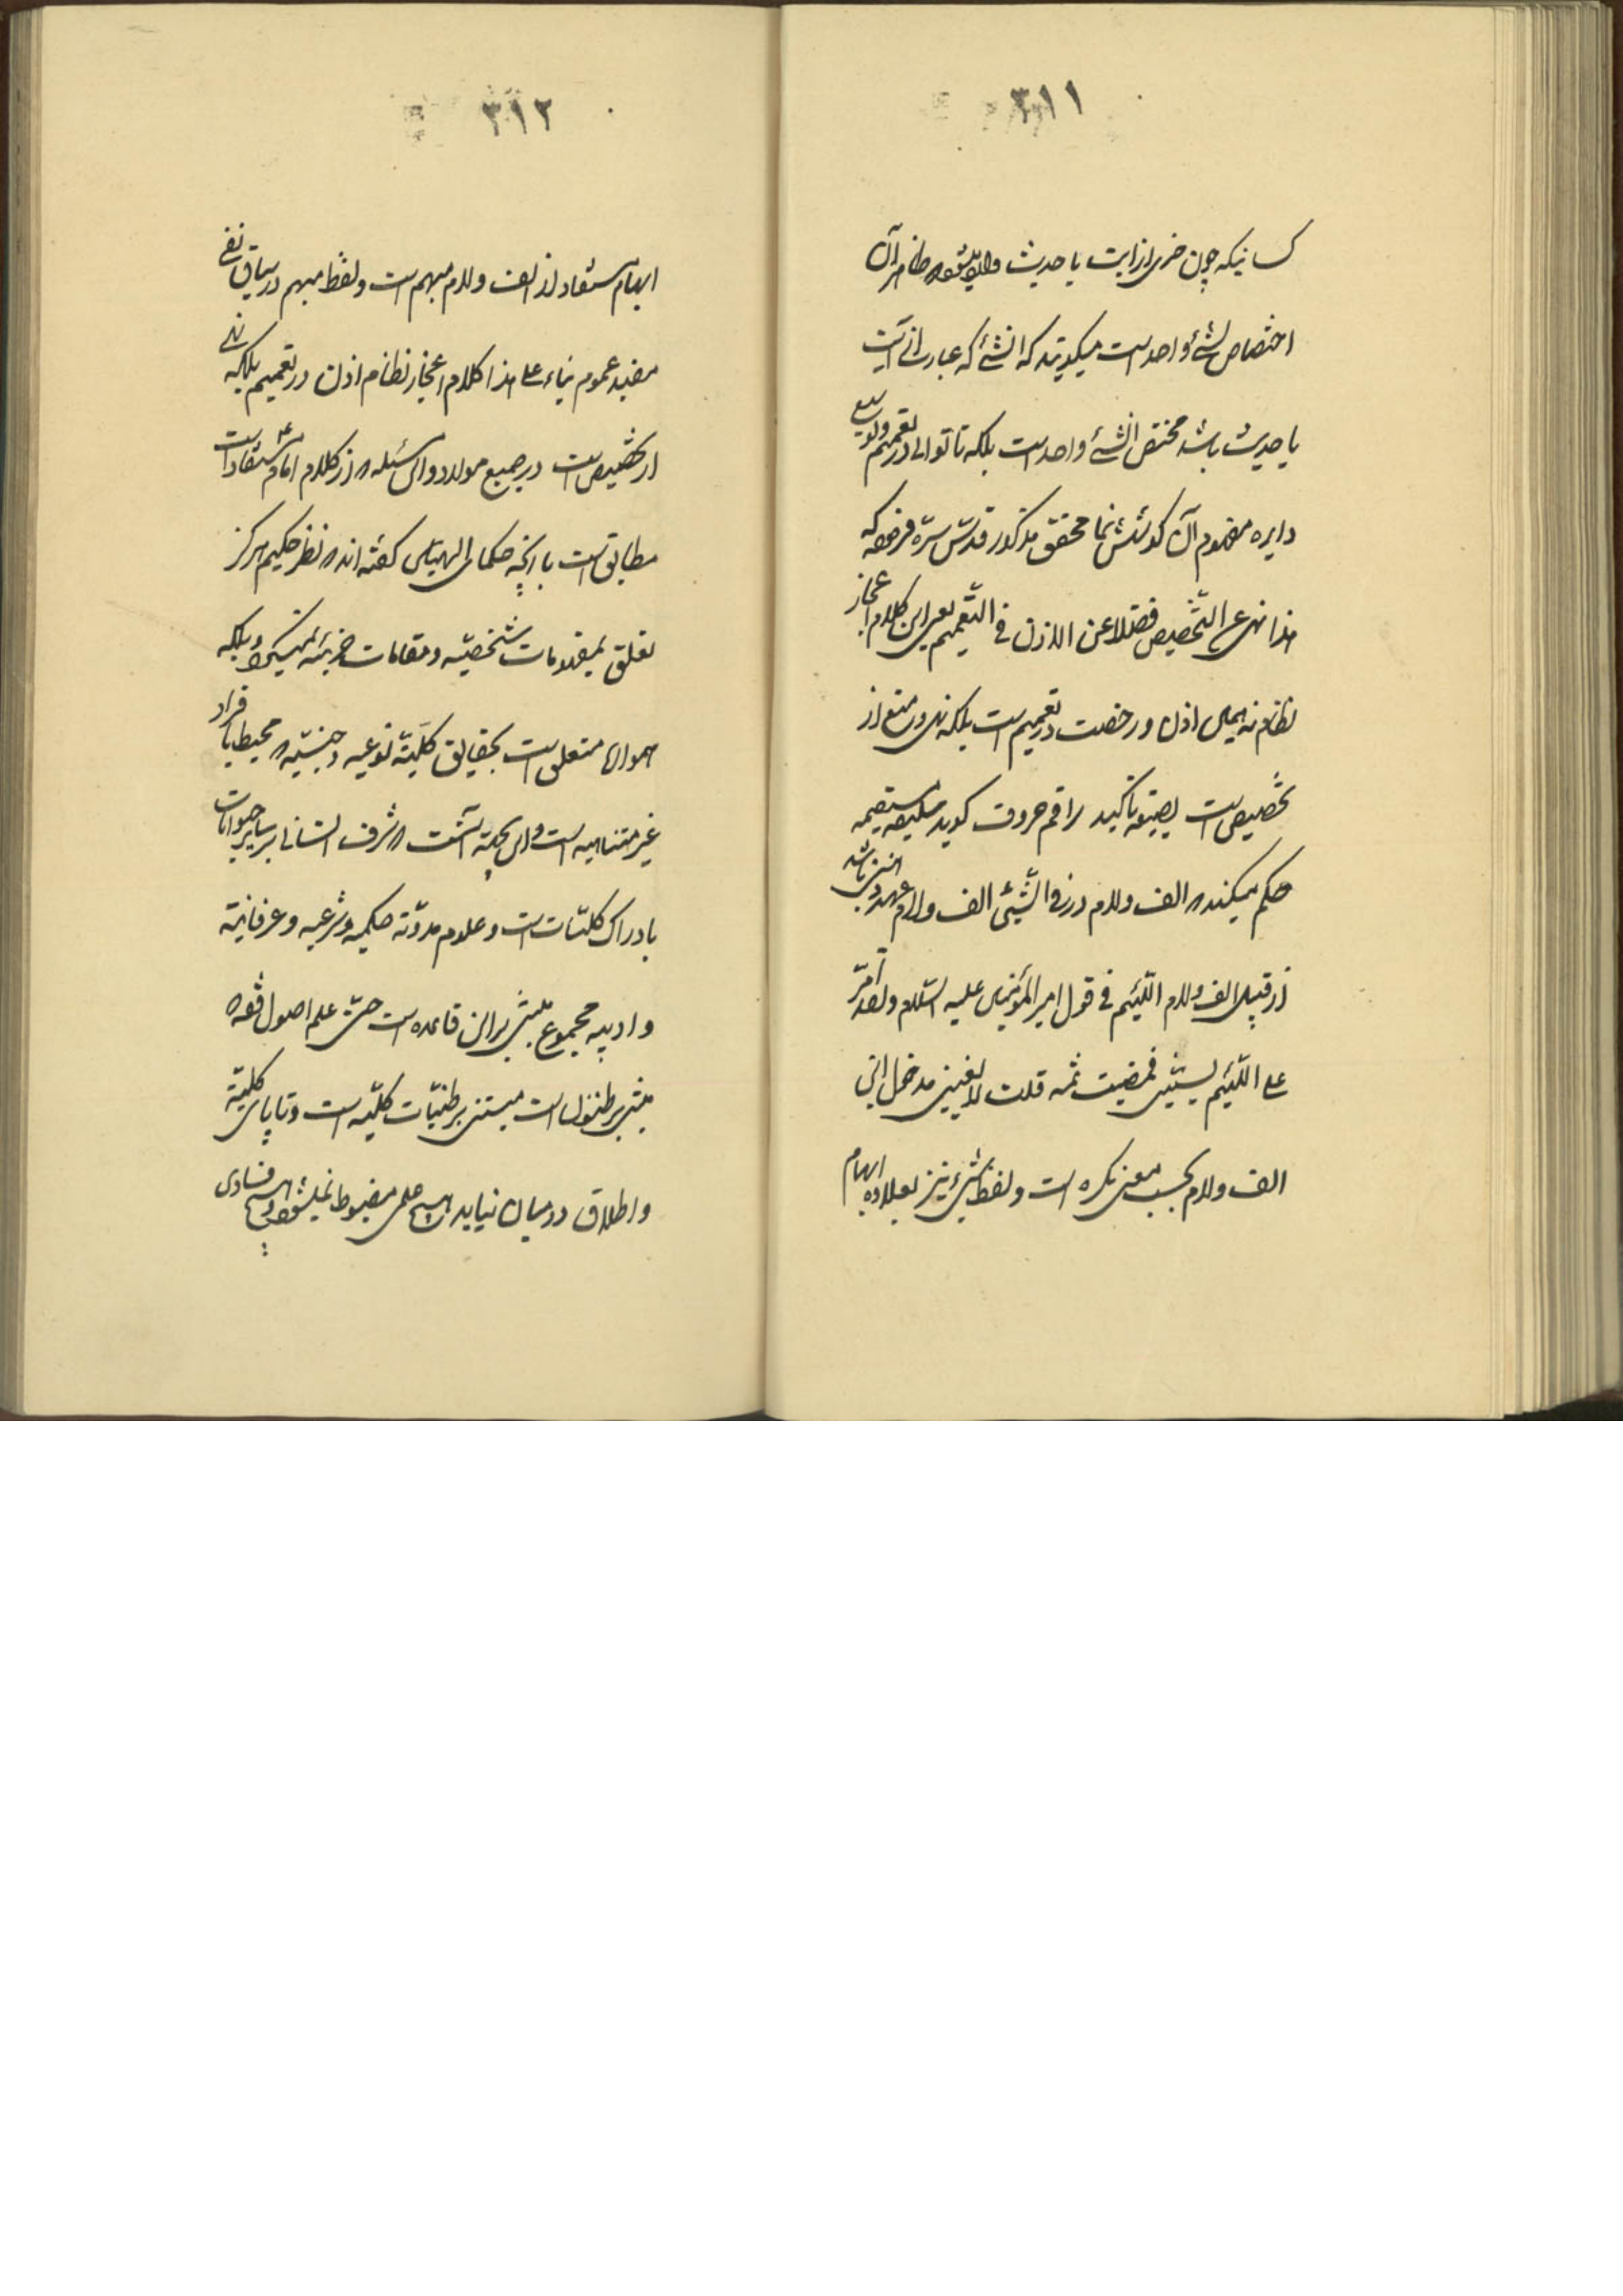 ۳۱۱
کسانیکه چون خبری از آیت یا حدیث وارد میشود ظاهر آن
اختصاص بشئ واحد است میگویند که الشئ که عبارت از آیت
یا حدیث باشد مختص الشئ واحد است بلکه تا توانی در تعمیم و توسیع
دایره مفهوم آن کوشش نما محقق مذکور قدس سره فرموده که
هذا نهی عن التخصیص فضلا عن الاذن فی التعمیم یعنی این کلام اعجاز
نظام نه همین اذن و رخصت در تعمیم است بلکه نهی و منع از
تخصیص است بصیغه تاکید راقم حروف گوید سلیقه مستقیمه
حکم میکند که الف و لام در فی الشیئ الف و لام عهد ذهنی باشد
از قبیل الف و لام اللئیم فی قول امیر المؤمنین علیه السلام ولقد أمرّ
علی اللئیم یسبنی فمضیت ثمه قلت لا یعنینی مدخول این
الف و لام بحسب معنی نکره است و لفظ شئ نیز بعلاوه ابهام
۳۱۲
ابهام مستفاد از الف و لام مبهم است و لفظ مبهم در سیاق نفی
مفید عموم بناء علی هذا کلام اعجاز نظام اذن در تعمیم بلکه نهی
از تخصیص است در جمیع موارد و این مسئله که از کلام امام ع مستفاد است
مطابق است با آنچه حکمای الهیین گفته اند که نظر حکیم هرگز
تعلق بمفهومات شخصیه و مقامات جزئیه نمیگیرد بلکه
هموارها متعلق است بحقایق کلیّه نوعیه و جنسیه که محیط بافراد
غیر متناهیه است و این بجهة آنست که شرف انسانی بر سایر حیوانات
بادراک کلیّات است و علوم مدوّنه حکمیه و شرعیه و عرفانیّه
و ادبیه مجموع مبتنی بر این قاعده است حتی علم اصول فقه که
مبتنی بر ظنون است مبتنی بر ظنیّات کلیّه است و تا پای کلیّة
و اطلاق در میان نیاید هیچ علمی مضبوط نمیشود و هیچ فسادی